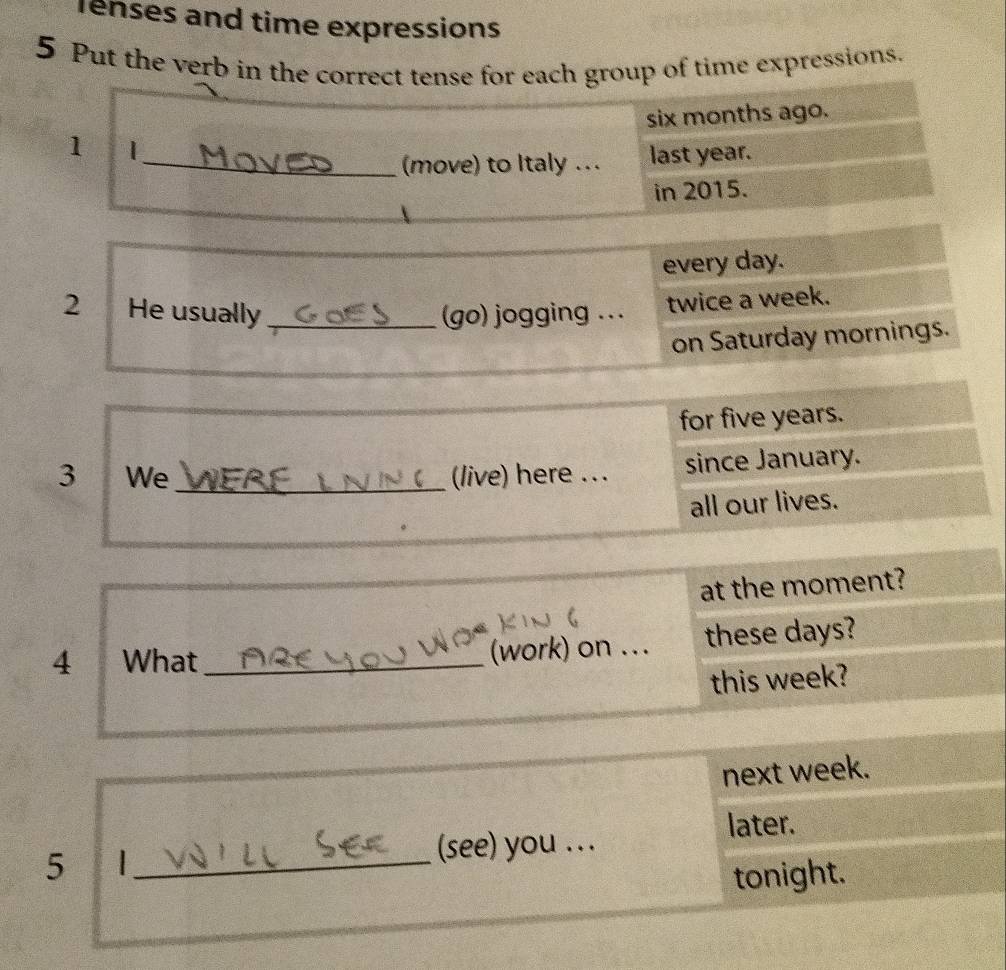 Tenses and time expressions
5 Put the verb in the correct tense for each group of time expressions.
six months ago.
1 I MOVED (move) to Italy ... last year.
in 2015.
every day.
2 He usually GOES (go) jogging ... twice a week.
on Saturday mornings.
for five years.
3 We WERE LIVING (live) here ... since January.
all our lives.
at the moment?
4 What ARE YOU WORKING (work) on ... these days?
this week?
next week.
5 I WILL SEE (see) you ... later.
tonight.